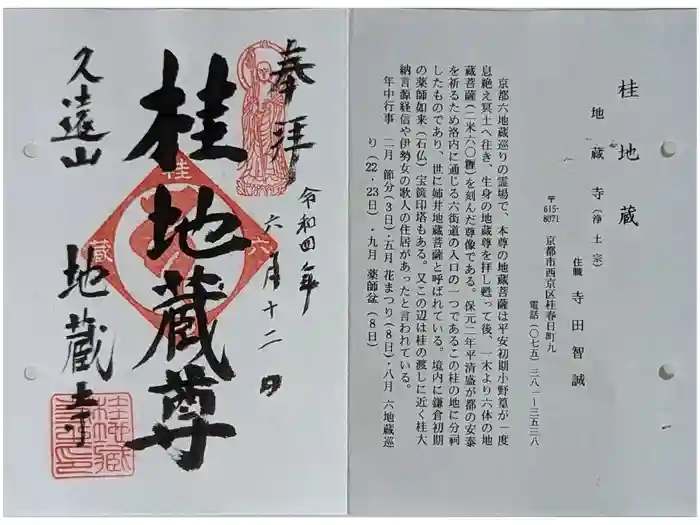 桂地蔵
地蔵寺（浄土宗）
住職 寺田智誠
〒615-8071 京都市西京区桂春日町九
電話（〇七五）三八一ー三五三八
京都六地蔵巡りの霊場で、本尊の地蔵菩薩は平安初期小野篁が一度
息絶え冥土へ往き、生身の地蔵尊を拝し甦って後、一木より六体の地
蔵菩薩（二米六〇糎）を刻んだ尊像である。保元二年平清盛が都の安泰
を祈るため洛内に通じる六街道の入口の一つであるこの桂の地に分祠
したものであり、世に姉井地蔵菩薩と呼ばれている。境内に鎌倉初期
の薬師如来（石仏）宝篋印塔もある。又この辺は桂の渡しに近く桂大
納言源経信や伊勢女の歌人の住居があったと言われている。
年中行事 二月 節分（3日）・五月 花まつり（8日）・八月 六地蔵巡
り（22・23日）・九月 薬師盆（8日）
奉拝
令和四年
六月十二日
桂地蔵尊
久遠山
地蔵寺
桂
蔵
六